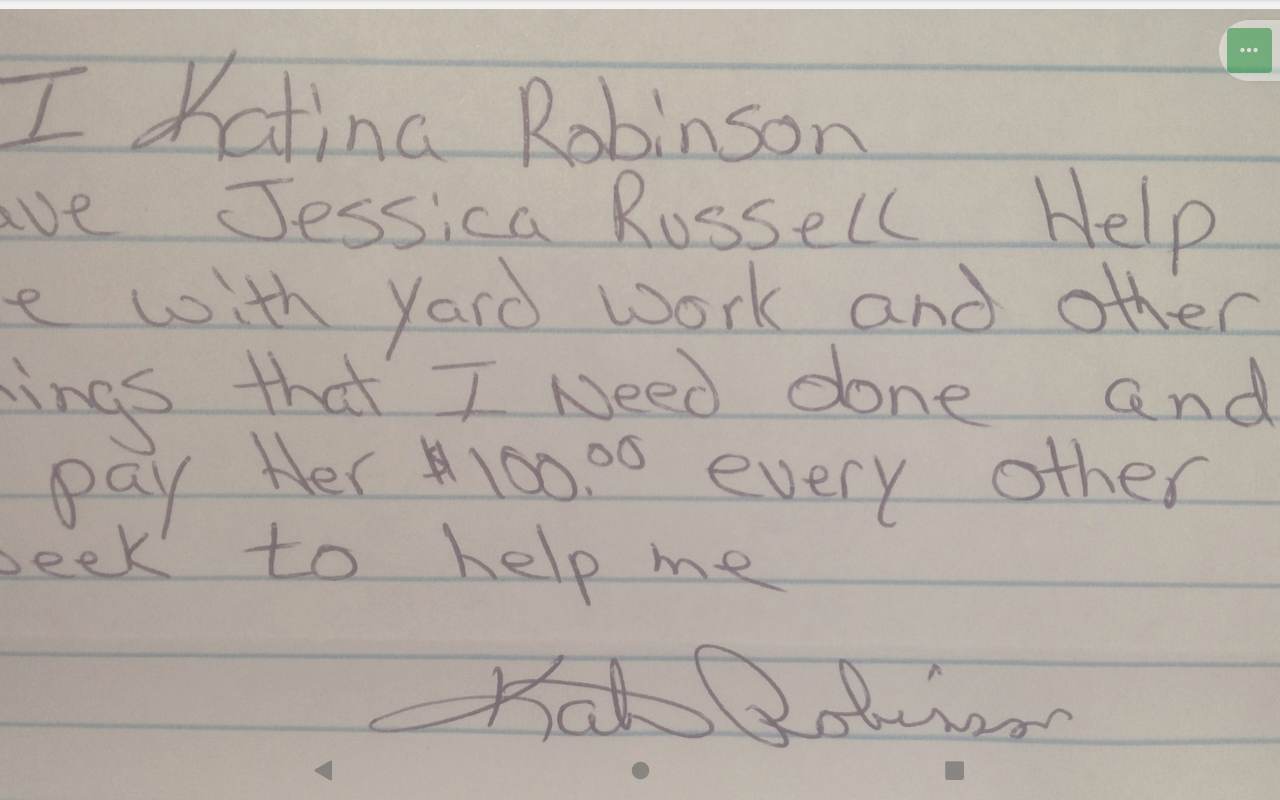 I Katina Robinson
ave Jessica Russell Help
e with yard work and other
hings that I Need done and
pay Her $100.00 every other
eek to help me
Kat Robinson